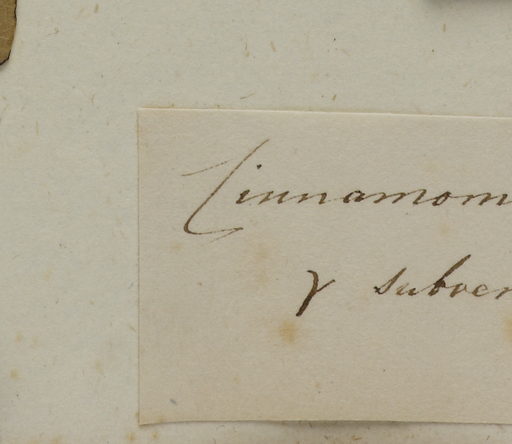 Cinnamom
γ subver